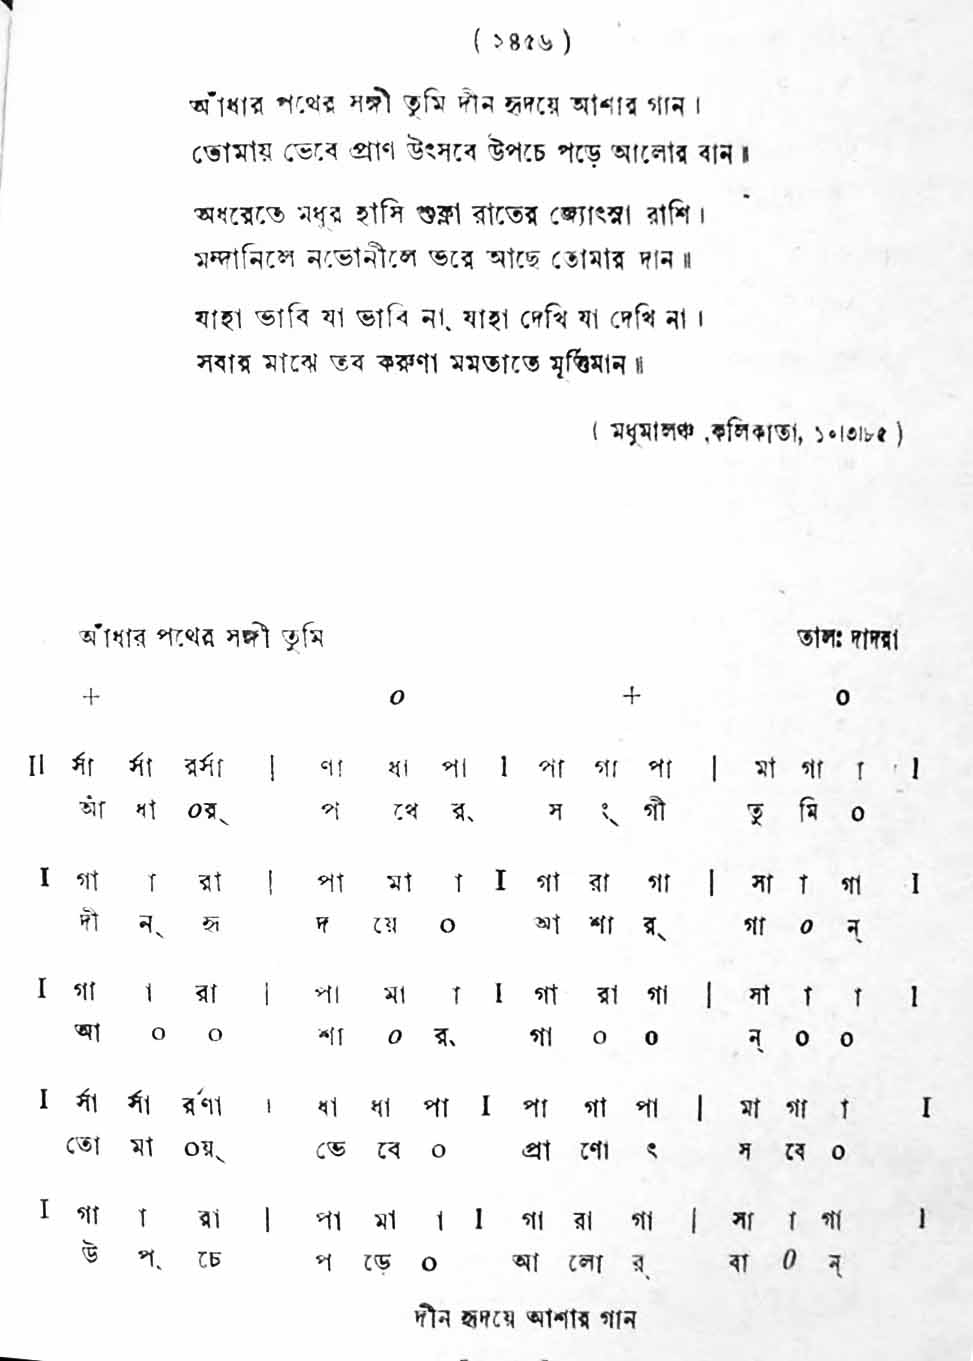 ( ১৪৫৬ )
আঁধার পথের সঙ্গী তুমি দীন হৃদয়ে আশার গান ।
তোমায় ভেবে প্রাণ উৎসবে উপচে পড়ে আলোর বান ॥
অধরেতে মধুর হাসি শুক্লা রাতের জ্যোৎস্না রাশি ।
মন্দানিলে নভোনীলে ভরে আছে তোমার দান ॥
যাহা ভাবি যা ভাবি না, যাহা দেখি যা দেখি না ।
সবার মাঝে তব করুণা মমতাতে মূর্ত্তিমান ॥
( মধুমালঞ্চ ,কলিকাতা, ১০।৩।৮৫ )
আঁধার পথের সঙ্গী তুমি তাল: দাদরা
+ o + o
II র্সা র্সা রর্সা | ণা ধা পা I পা গা পা | মা গা া I
আঁ ধা oর্ প থে র্ স ং গী তু মি o
I গা া রা | পা মা া I গা রা গা | সা া গা I
দী ন্ হৃ দ য়ে o আ শা র্ গা o ন্
I গা া রা | পা মা া I গা রা গা | সা া া I
আ o o শা o র্ গা o o ন্ o o
I র্সা র্সা র্রণা । ধা ধা পা I পা গা পা | মা গা া I
তো মা oয়্ ভে বে o প্রা ণো ৎ স বে o
I গা া রা | পা মা া I গা রা গা | সা া গা I
উ প্ চে প ড়ে o আ লো র্ বা o ন্
দীন হৃদয়ে আশার গান